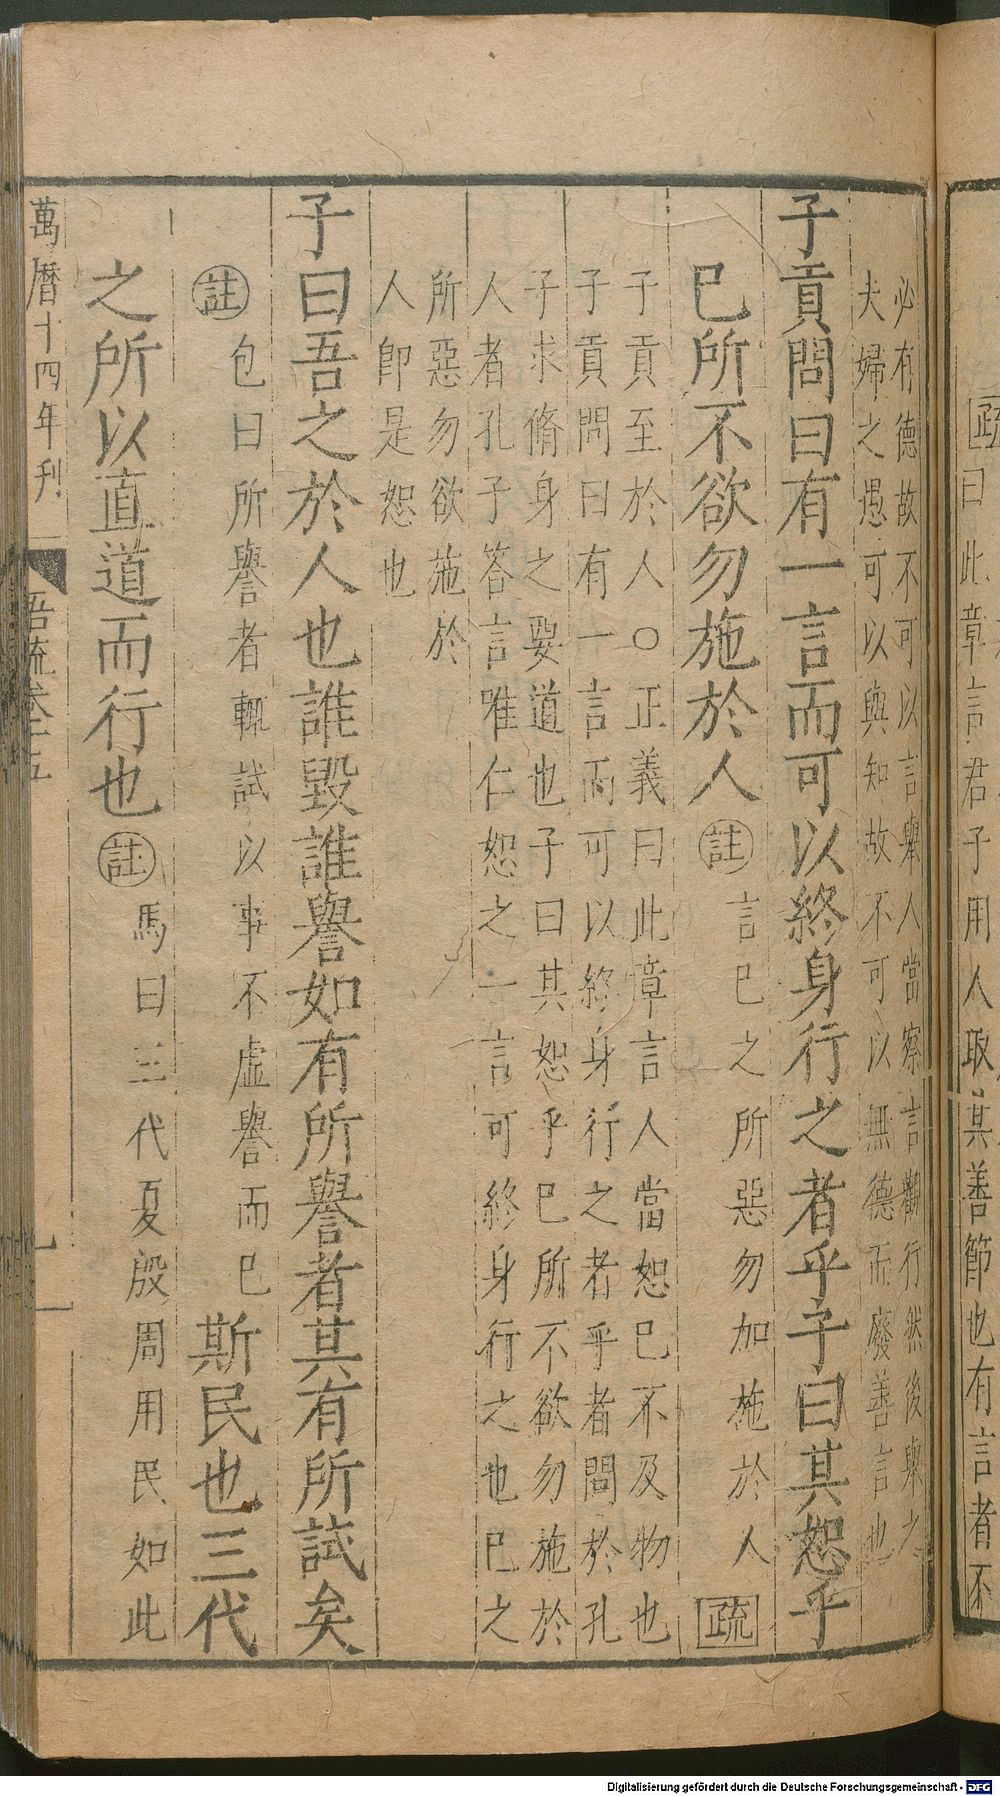 疏
曰此章言君子用人取其善節也有言者不
必有德故不可以言舉人當察言觀行然後舉之
夫婦之愚可以與知故不可以無德而廢善言也
子貢問曰有一言而可以終身行之者乎子曰其恕乎
已所不欲勿施於人
註
言已之所惡勿加施於人
疏
子貢至於人○正義曰此章言人當恕已不及物也
子貢問曰有一言而可以終身行之者乎者問於孔
子求脩身之要道也子曰其恕乎已所不欲勿施於
人者孔子答言唯仁恕之一言可終身行之也已之
所惡勿欲施於
人即是恕也
子曰吾之於人也誰毀誰譽如有所譽者其有所試矣
註
包曰所譽者輒試以事不虛譽而已
斯民也三代
之所以直道而行也
註
馬曰三代夏殷周用民如此
萬曆十四年刊
吾疏卷十五
七
Digitalisierung gefördert durch die Deutsche Forschungsgemeinschaft - DFG